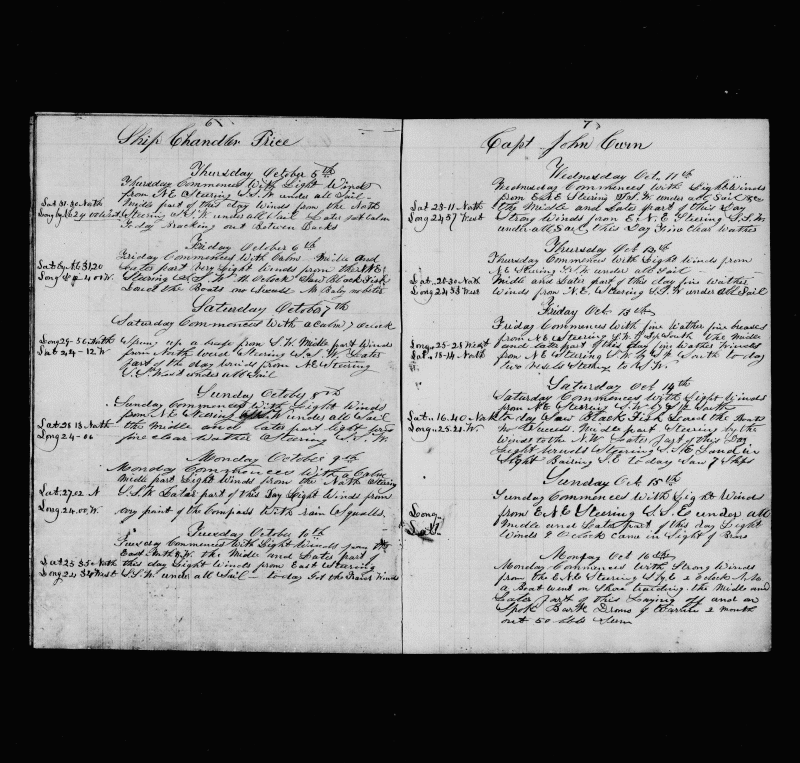 6
Ship Chandler Price
Thursday October 5th
Thursday Commences With Light Winds
from N.E Steering S.S.W. under all Sail —
Lat 31-30 North
Middle part of this day Winds from the North
Long 24 00 West
Steering S.S.W. under all Sail Later part Calm
To day Breacking out Between Decks
Friday October 6th
Friday Commences With Calm Middle and
Lat 31 20
Later part Very Light Winds from the N.E
Steering S.S.W. Oclock Saw Black Fish
Loard the Boats no Sucsess
Saturday October 7th
Saturday Commences With a Calm 7 oclock
Long 24-56 North
Sprung up a breese from S.W. Middle part Winds
Lat 24-12 W
from North West Steering S.S.W. Later
part of the day winds from N.E Steering
S.S. West under all Sail
Sunday October 8th
Sunday commences With Light Winds
from N.E Steering under all Sail
Lat 28 18 North
the middle and later part light
Long 24-06
fine clear Wather Steering S.S.W.
Monday October 9th
Monday Commences With a Calm
Middle part Light Winds from the North Steering
Lat. 27.02 N
S.S.W. Later part of this Day Light Winds from
Long 24.00.W.
any point of the Compass With rain Squalls.
Tuesday October 10th
Tuesday Commences With Light Winds from the
East North E. the Middle and Later part of
Lat 25 35 North
this day Light Winds from East Steering
Long 24 34 West
S.S.W. under all Sail — to day Got the Trades Winds
7
Capt John Curn
Wednesday Oct. 11th
Wednesday Commences With Light Winds
from E.N.E Steering S.S.W. under all Sail
Lat 23-11 North
the Middle and Later part of this Day
Long 24 37 West
Strong Winds from E.N.E Steering S.S.W.
under all Sail, this Day Fine Clear Wather
Thursday Oct 12th
Thursday Commences With Light Winds from
N.E Steering S.S.W. under all Sail —
Lat. 20-30 North
Middle and Later part of this day fine Wather
Long 24 53 West
Winds from N.E. Steering S.S.W under all Sail
Friday Oct 13th
Friday Commences With fine Wather fine breases
from N.E Steering S.W. by South the Middle
Long. 25-28 West
and later part of this day fine Wather Winds
Lat. 18-14 North
from N.E Steering S.W. by South to day
two vessels Steering to S.W.
Saturday Oct 14th
Saturday Commences With Light Winds
from N.E Steering S.W. by South
Lat. 16.40 North
to day Saw Black Fish Loard the boats
Long. 25.21.W.
no Sucsess. Middle part Steering by the
Winds to the N.W. Later Part of this Day
Light Winds Steering S.E Land in
Sight Bairing S.E to day Saw 7 Ships
Sunday Oct 15th
Sunday Commences With Light Winds
Long
from E.N.E Steering S.S.E under all
Lat
Middle and Later part of this day Light
Winds 2 Oclock came in Sight of
Monday Oct 16th
Monday Commences With Strong Winds
from the E.N.E Steering 2 oclock P.M.
a Boat went on Shore trading the Middle and
Later Part of this Laying off and on
Spok Bark 2 month
out 50 bbls